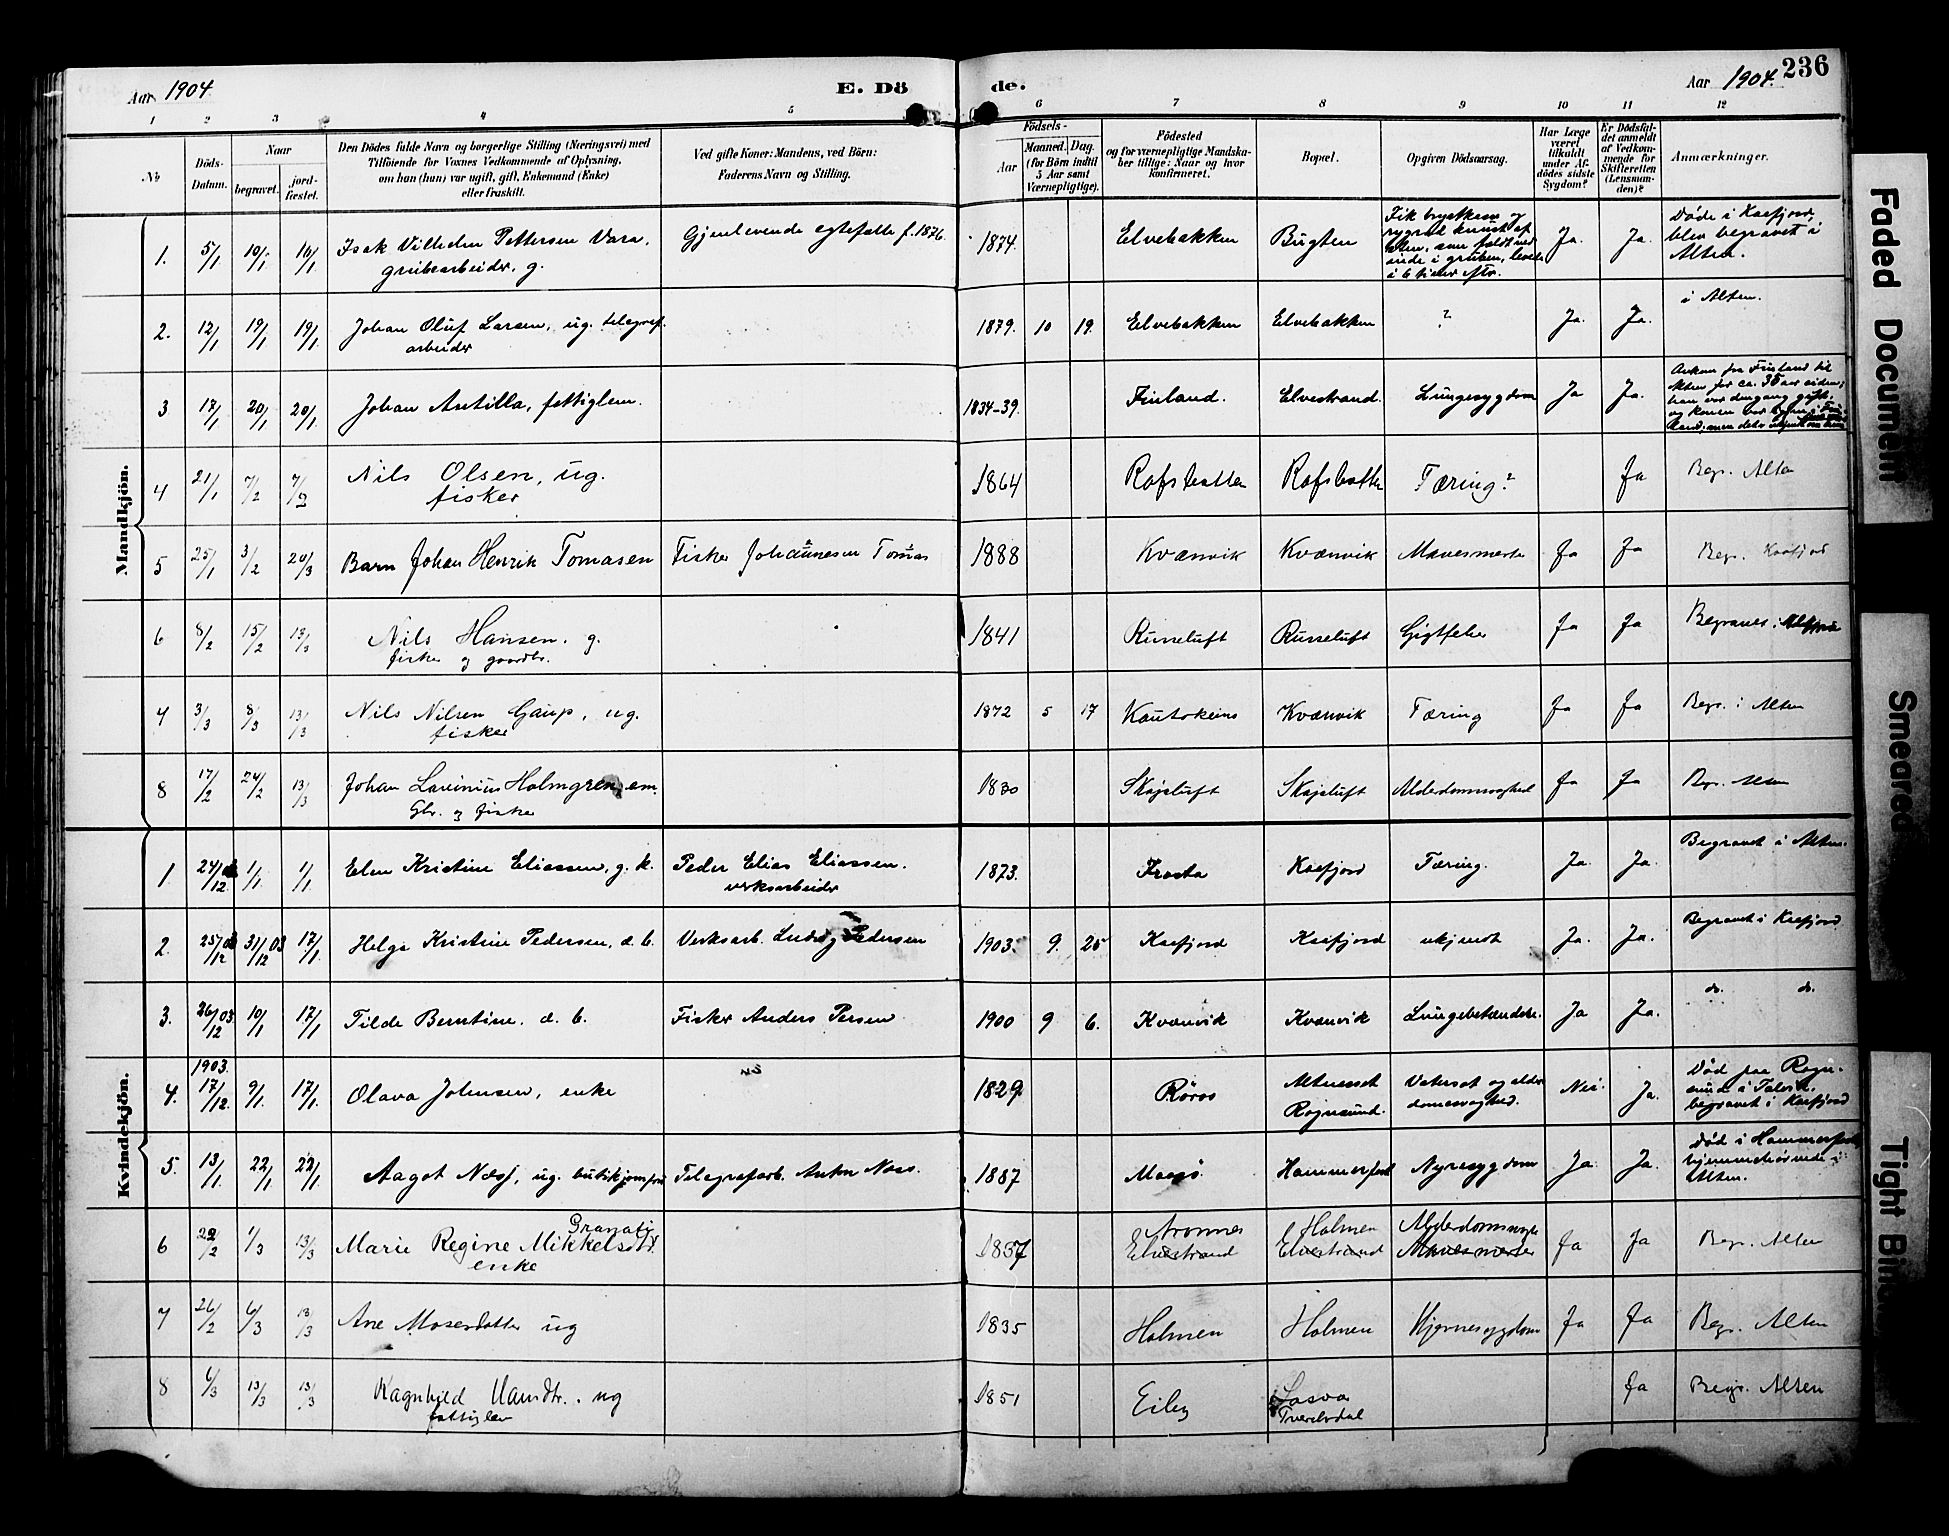 Aar 1904
E. Dö
de.
Aar 1904.
236
1 2 3 4 5 6 7 8 9 10 11 12
No
Döds-Datum.
Naar
begravet.
jord-fæstet.
Den Dödes fulde Navn og borgerlige Stilling (Næringsvei) med
Tilföiende for Voxnes Vedkommende af Oplysning,
om han (hun) var ugift, gift, Enkemand (Enke)
eller fraskilt.
Ved gifte Koner: Mandens, ved Börn:
Faderens Navn og Stilling.
Födsels-
Aar
Maaned. Dag.
(for Börn indtil
5 Aar samt
Værnepligtige).
Födested
og for værnepligtige Mandska-
ber tillige: Naar og hvor
konfirmeret.
Bopæl.
Opgiven Dödsaarsag.
Har Læge
været
tilkaldt
under Af-
dödes sidste
Sygdom?
Er Dödsfal-
det anmeldt
af Vedkom-
mende for
Skifteretten
(Lensman-
den)?
Anmærkninger.
Mandkjön.
1. 5/1 10/1 10/1 Isak Vilhelm Pettersen Vara, Gjenlevende egtefælle f. 1876. 1874. Elvebakken Bugten Ja. Ja. Døde i Kaafjord,
grubearbeider, g. blev begravet i
Alten.
2. 12/1 19/1 19/1 Johan Oluf Larsen, ug. telegraf. 1879. 10 19. Elvebakken Elvebakken ? Ja. Ja. i Alten.
arbeider
3. 17/1 20/1 20/1 Johan Antilla, fattiglem. 1834-39. Finland. Elvestrand. Lungesygdom Ja Ja. Ankom fra Finland til
Alten for ca. 35 aar siden;
han var dengang gift,
4 21/1 7/2 7/2 Nils Olsen, ug. 1864 Rafsbotten Rafsbotten Tæring? Ja Begr. Alten
fisker
5 25/1 3/2 20/3 Barn Johan Henrik Tomasen Fisker Johannesen Tomas 1888 Kvænvik Kvænvik Mavesmerte Ja Ja Begr. Kaafjord
6 8/2 15/2 13/3 Nils Hansen. g. 1841 Russeluft Russeluft Gigtfeber Ja Ja Begraves i
fisker og gaardbr.
7 3/3 8/3 13/3 Nils Nilsen Gaup, ug. 1872 5 17 Kautokeino Kvænvik Tæring Ja Ja Begr. i Alten
fisker
8 17/2 24/2 13/3 Johan Lavinius Holmgren, em. 1830 Skojeluft Skojeluft Alderdomssvaghed Ja Ja Begr. Alten
Gbr. og fisker
Kvindekjön.
1. 24/12 1/1 1/1 Elen Kristine Eliassen, g. k. Peder Elias Eliassen. 1873. Frosta Kaafjord Tæring. Ja. Ja. Begravet i Alten.
verksarbeider
2. 25/12 03 31/12 03 17/1 Helga Kristine Pedersen, d. b. Verksarb. Ludvig Pedersen 1903. 9. 25 Kaafjord Kaafjord ukjendt Ja. Ja. Begravet i Kaafjord
3. 26/12 03 10/1 17/1 Tilde Berntine. d. b. Fisker Anders Persen 1900 9 6. Kvænvik Kvænvik Lungebetændelse. Ja Ja. do. do.
4. 1903. 17/12. 9/1. 17/1. Olava Johnsen, enke 1829 Røros Altneset Vatersot og alder- Nei. Ja. Død paa Rogn-
Rognsund. domssvaghed. sund i Talvik,
begravet i Kaafjord
5. 13/1. 22/1 22/1. Aagot Næss, ug. butikjomfru Telegrafarb. Anton Næss. 1887 Maasø Hammerfest Nyresygdom Ja. Ja. Død i Hammerfest
hjemmehørende i
Alten.
6 22/2 1/3 13/3 Granati Aronnes Holmen Alderdomssvagh
Marie Regine Mikkelsdtr. 1837 Elvestrand Elvestrand Mavesmerter Ja Ja Begr. Alten
enke
7 26/2 6/3 13/3 Ane Mosesdatter ug 1835 Holmen Holmen Hjernesygdom Ja Ja Begr. Alten
8 6/3 13/3 13/3 Ragnhild Hansdtr. ug 1851 Eiby Ja Begr. Alten
fattiglem Tverelvdal
Faded Document
Smeared
Tight